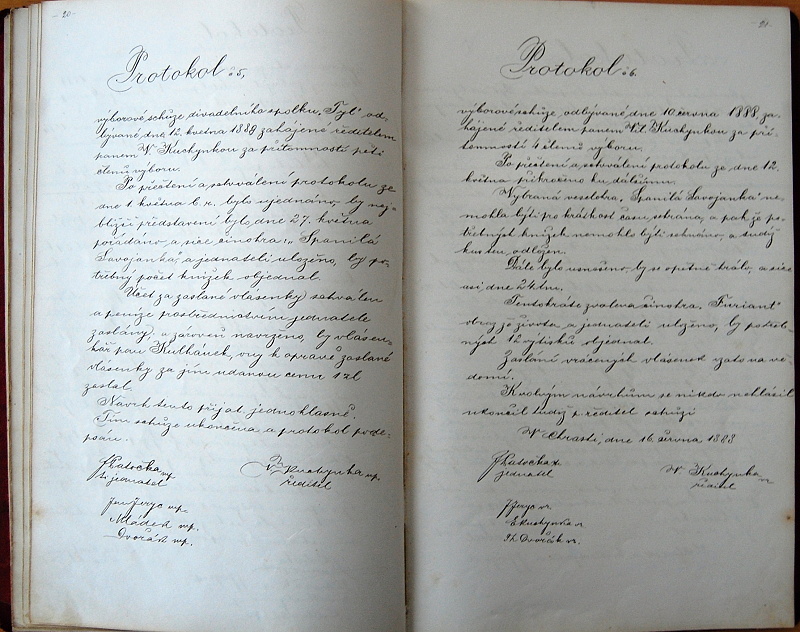 - 20 -
Protokol č 5,
výborové schůze divadelního spolku „Tyl" od-
bývané dne 12. května 1888 zahájené ředitelem
panem W. Kuchynkou za přítomnosti pěti
členů výboru.
Po přečtení a schválení protokolu ze
dne 1 května b. r. bylo ujednáno, by nej-
bližší představení bylo dne 27. května
pořádáno, a sice činohra: „Spanilá
Savojanka", a jednateli uloženo, by po-
třebný počet knížek objednal.
Účet za zaslané vlásenky schválen
a peníze prostřednictvím jednatele
zaslány, a zároveň navrženo, by vlásen-
kář pan Kulhánek, vny k opravě zaslané
vlásenky za jím udanou cenu 1 zl
zaslal.
Návrh tento přijat jednohlasně.
Tím schůze ukončena a protokol pode-
psán.
J Latočka mp
t. č. jednatel
W Kuchynka mp.
ředitel
Jan Jeryc mp.
Mládek mp.
Dvořák mp.
21 -
Protokol č 6.
výborové schůze, odbývané dne 10. června 1888, za-
hájené ředitelem panem Vil. Kuchynkou za pří-
tomnosti 4 členů výboru.
Po přečtení a schválení protokolu ze dne 12.
května přikročeno ku dalšímu.
Vybraná veselohra, „Spanilá Savojanka" ne-
mohla býti pro krátkost času sehrána, a pak že po-
třebných knížek nemohlo býti sehnáno, a tudíž
kus ten odložen.
Dále bylo usnešeno, by se opětně hrálo, a sice
asi dne 24 t.m.
Tentokráte zvolena činohra. „Furianti"
obraz ze života, a jednateli uloženo, by potřeb-
ných 12 výtisků objednal.
Zaslání vrácených vlásenek vzato na vě-
domí.
K volným návrhům se nikdo nehlásil
ukončil tudíž p. ředitel schůzi
W Chrasti, dne 16. června 1888
J Latočka
jednatel
W Kuchynka
ředitel
J Jeryc
E Kuchynka
Dvořák